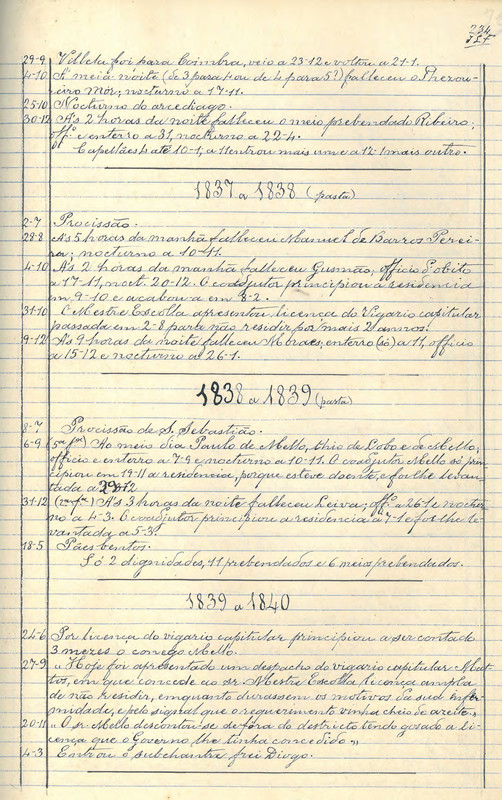 234
29-9 Villela foi para Coimbra, veio a 23-12 e voltou a 21-1.
4-10 A' meia noite (de 3 para 4 ou de 4 para 5?) falleceu o Thezou-
reiro Mór; nocturno a 17-11.
25-10 Nocturno do arcediago.
30-12 A's 2 horas da noite falleceu o meio prebendado Ribeiro;
off.º e enterro a 31, nocturno a 22-4.
Capellães 4 até 10-1, a 11 entrou mais um e a 12-1 mais outro.
1837 a 1838 (pasta)
2-7 Procissão.
28-8 A's 5 horas da manhã falleceu Manuel de Barros Perei-
ra; nocturno a 10-11.
4-10 A's 2 horas da manhã falleceu Gusmão; officio e obito
a 17-11, noct. 20-12. O coadjutor principiou a residencia
em 9-10 e acabou a em 8-2.
31-10 O Mestre Escolla apresentou licença do Vigario capitular
passada em 2-8 para não residir por mais 2 annos.
9-12 A's 9 horas da noite falleceu Moraes; enterro (só) a 11, officio
a 15-12 e nocturno a 26-1.
1838 a 1839 (pasta)
8-7 Procissão de S. Sebastião.
6-9 (5ª fª) Ao meio dia Paulo de Mello, thio de Lobo e de Mello;
officio e enterro a 7-9 e nocturno a 10-11. O coadjutor Mello só prin-
cipiou em 19-11 a residencia, porque esteve doente, e foi lhe levan-
tada a 29-12
31-12 A's 3 horas da noite falleceu Leiva; off.º a 26-1 e noctur
no a 4-3. O coadjutor principiou a residencia a 7-1 e foi lhe le-
vantada a 5-3.
18-5 Pães bentos.
Só 2 dignidades, 11 prebendados e 6 meios prebendados.
1839 a 1840
24-6 Por licença do vigario capitular principiou a ser contado
3 mezes o conego Mello.
27-9 „Hoje foi apresentado um despacho do vigario capitular Mat-
tos, em que concede ao sr. Mestre Escolla licença ampla
de não residir, emquanto durassem os motivos da sua enfer-
midade, e pelo signal que o requerimento vinha cheio de azeite.„
20-11 „O sr. Mello descontou-se de fóra do districto tendo gosado a li-
cença que o Governo lhe tinha concedido„
4-3 Entrou o subchantre frei Diogo.